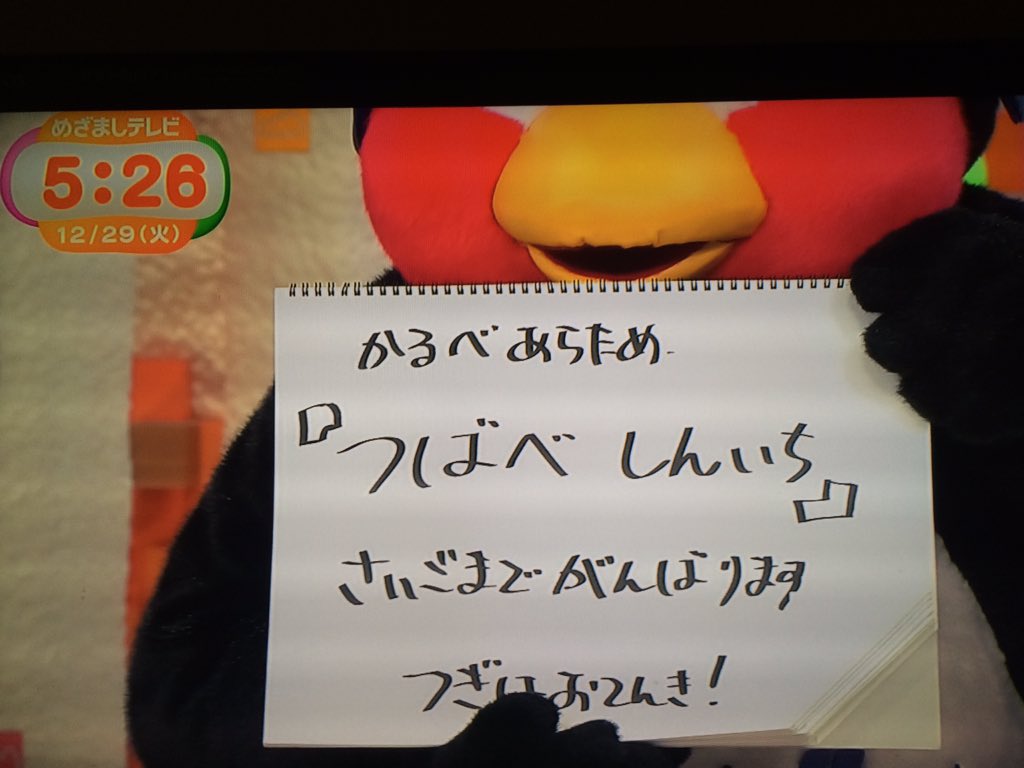 めざましテレビ
5:26
12/29(火)
かるべあらため
『つばべ しんいち』
さいごまでがんばります
つぎはおてんき!